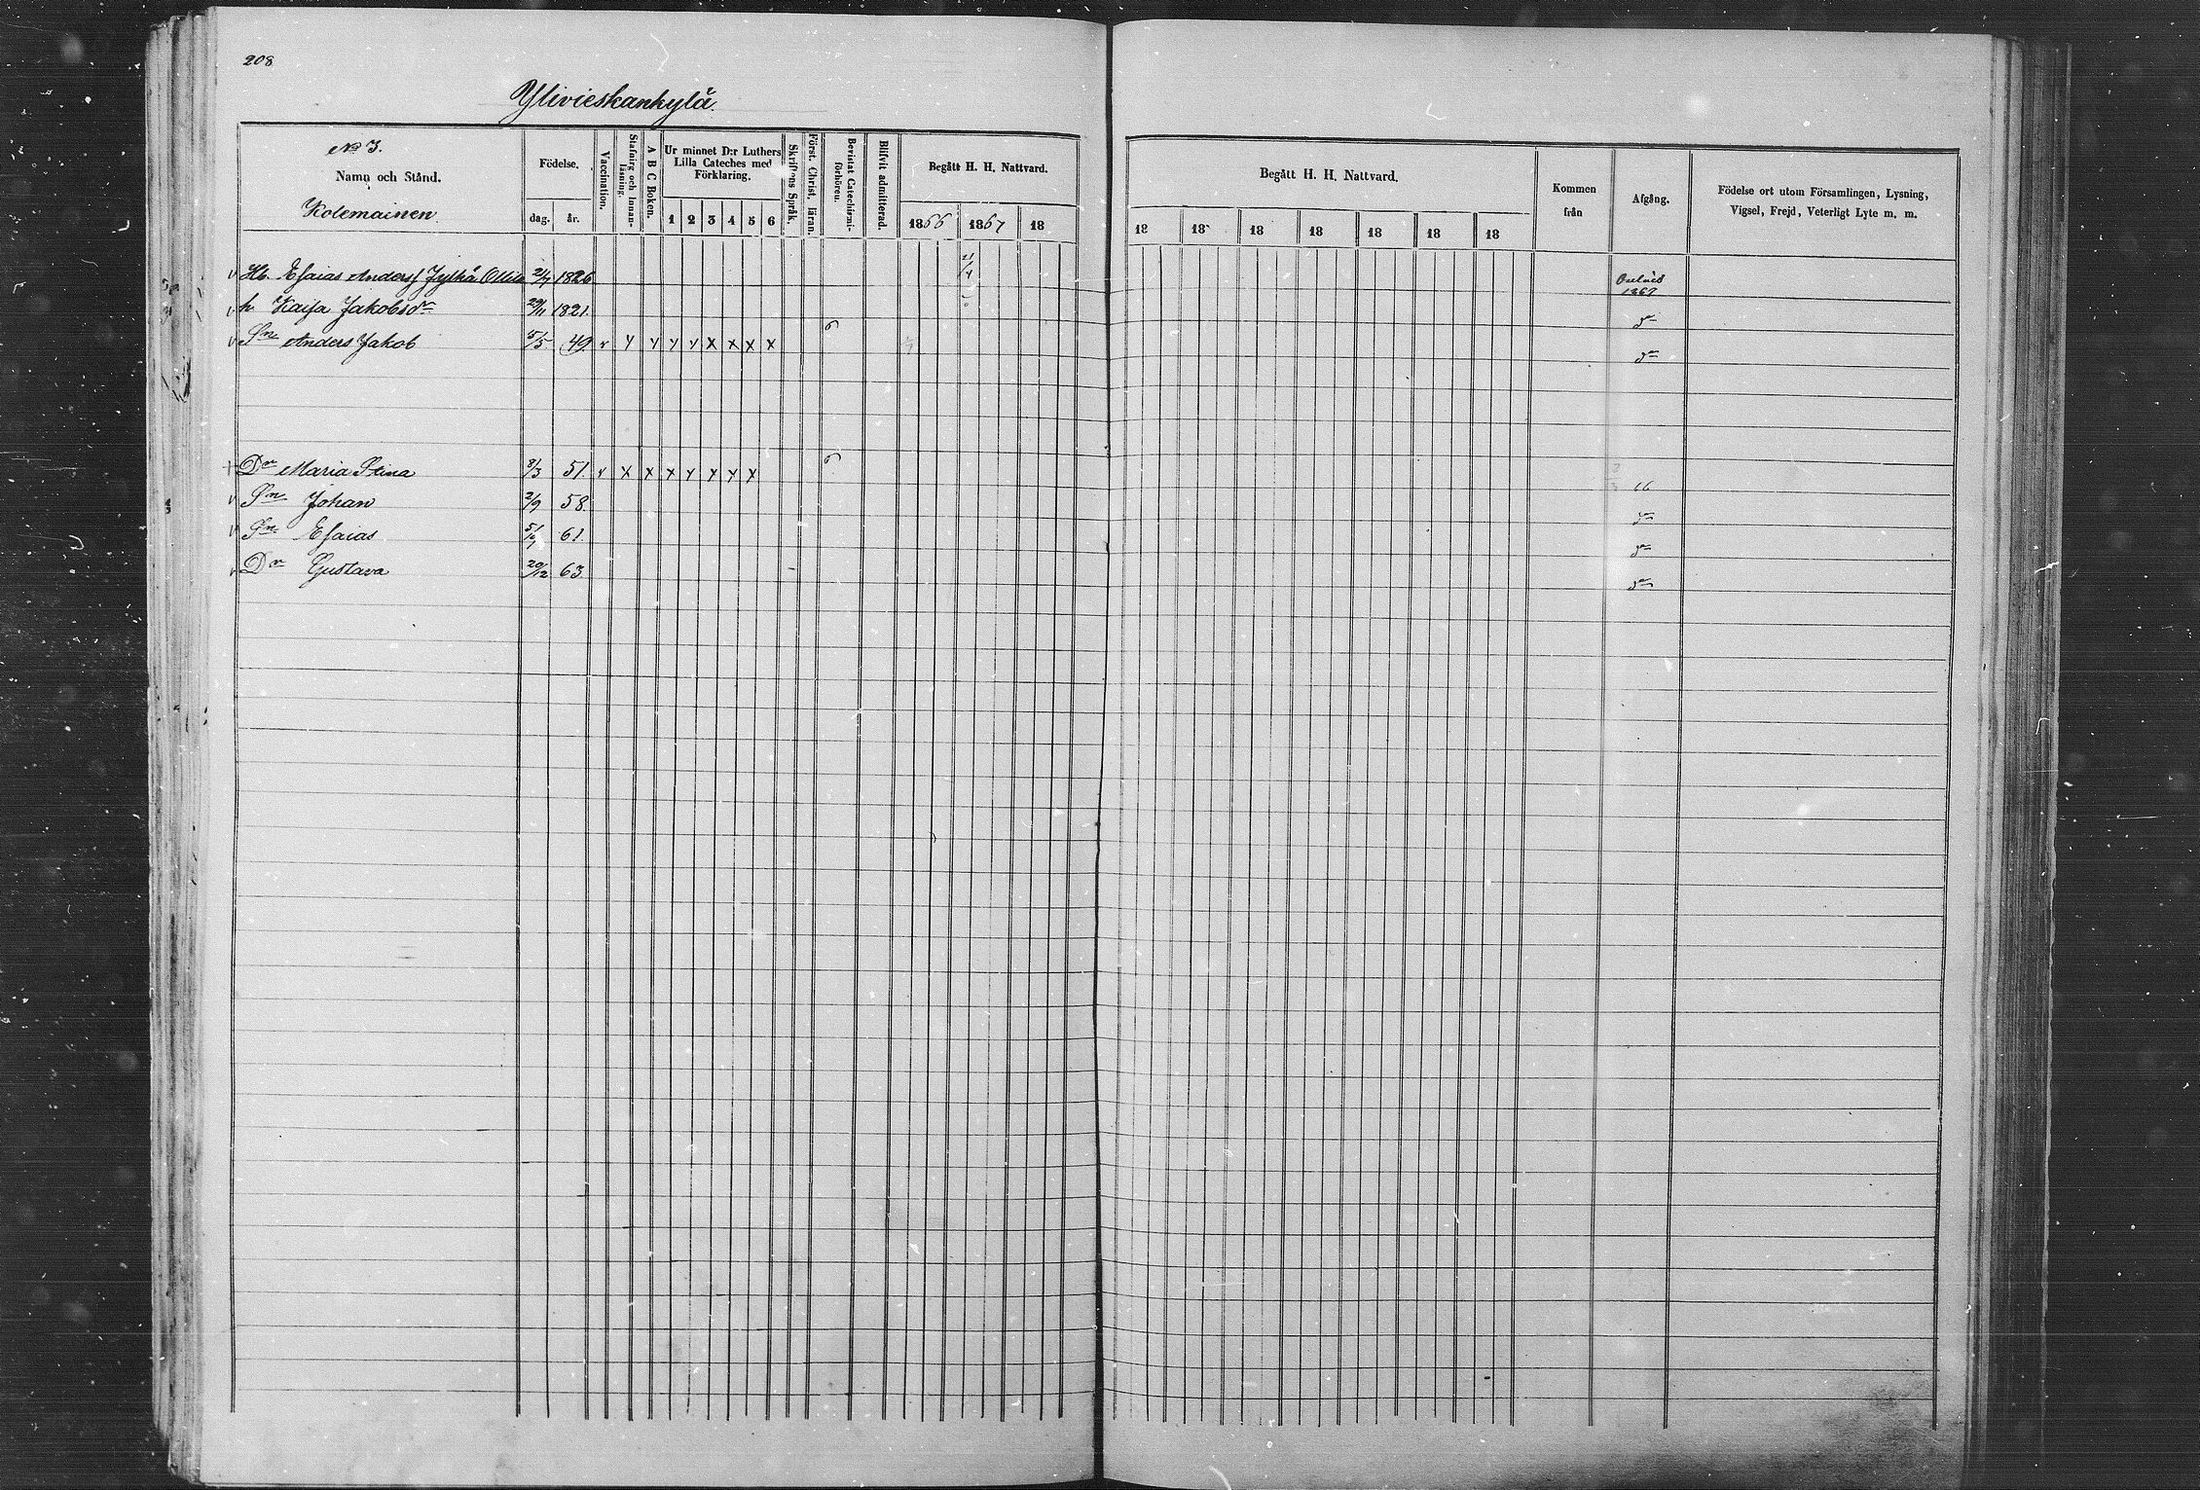 208
Ylivieskankylä
No 3.
Namn och Stånd.
Kolemainen
Födelse.
dag. år.
Vaccination.
Stafning och Innanläsning.
A B C Boken.
Ur minnet D:r Luthers Lilla Cateches med Förklaring.
1 2 3 4 5 6
Skriftens Språk.
Först. Christ. läran.
Bevistat Catechismiförhören.
Blifvit admitterad.
Begått H. H. Nattvard.
1866 1867 18
Begått H. H. Nattvard.
18 18 18 18 18 18 18
Kommen från
Afgång.
Födelse ort utom Församlingen, Lysning,
Vigsel, Frejd, Veterligt Lyte m. m.
Esaias Anders Jylhä 1826
h. Kaisa Jakobsdr 29/11 1821.
Sn Anders Jakob 49. v y y y v x x x x 6
Dr Maria Stina 8/3 51. v x x x y x y x 6
Sn Johan 2/9 58.
Sn Esaias 61.
Dr Gustava 20/12 63.
1867